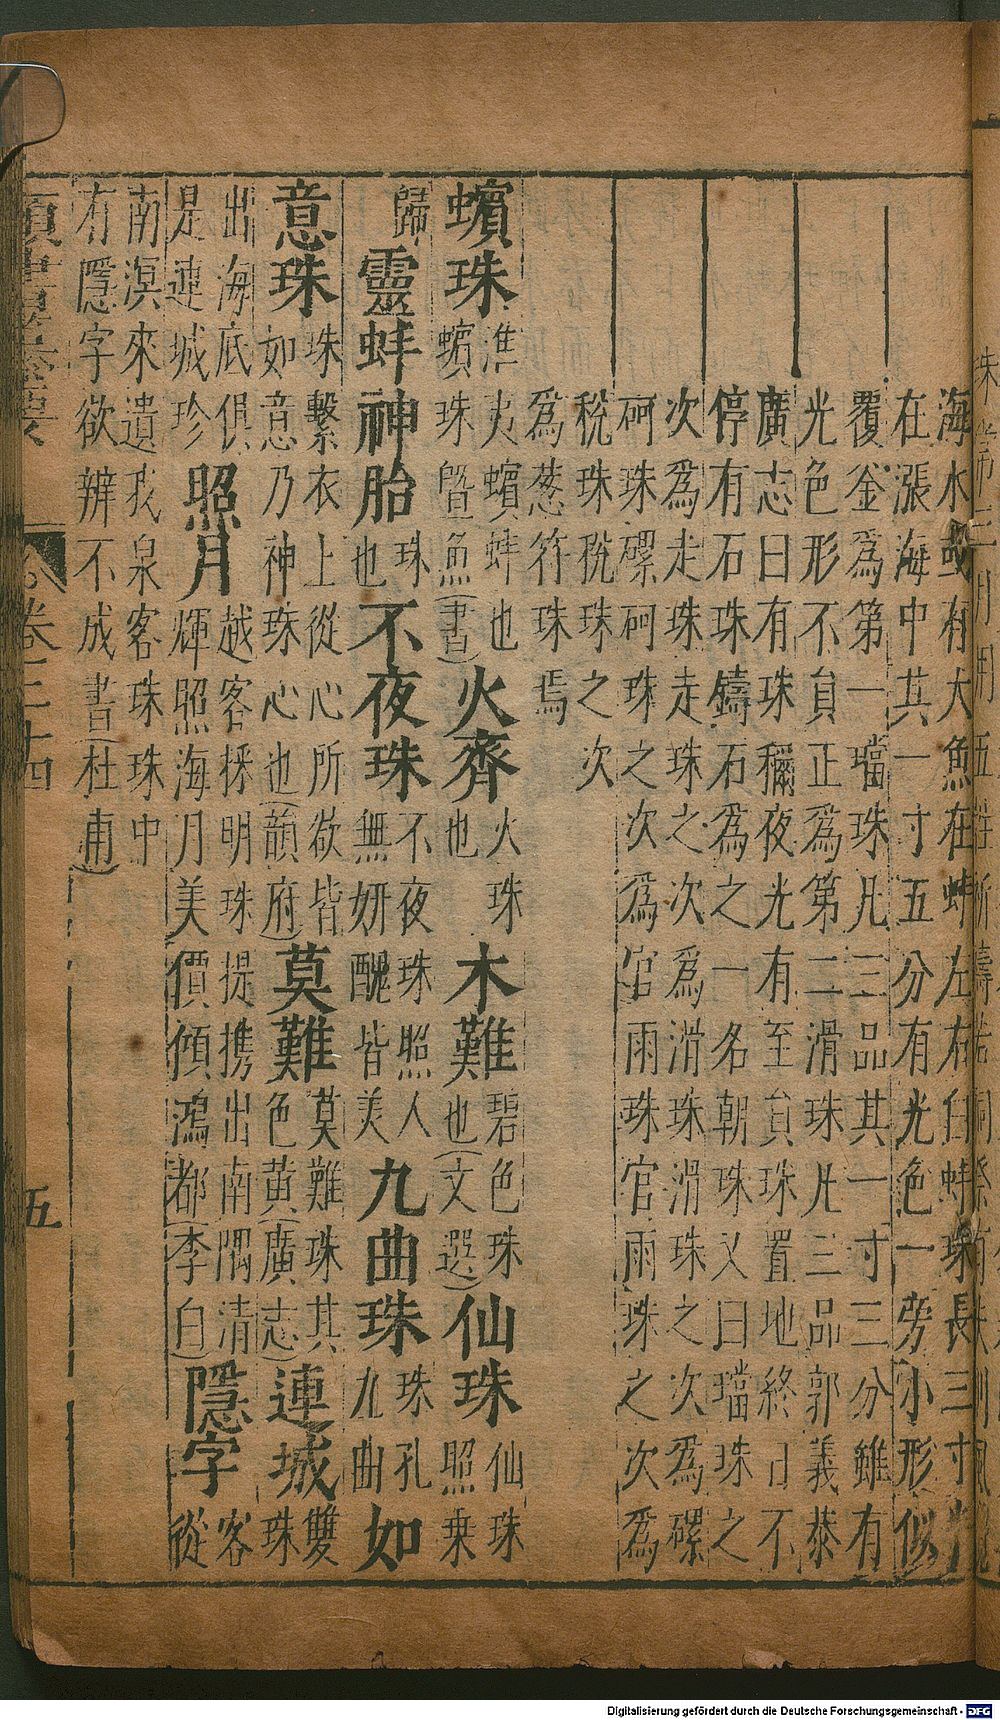 海水或有大魚在蚌左右白蚌珠長三寸
在漲海中其一寸五分有光色一旁小形似
覆釜為第一璫珠凡三品其一寸三分雖有
光色形不員正為第二滑珠凡三品郭義恭
廣志曰有珠穪夜光有至員珠置地終日不
停有石珠鑄石為之一名朝珠又曰璫珠之
次為走珠走珠之次為滑珠滑珠之次為磥
砢珠磥砢珠之次為官雨珠官雨珠之次為
稅珠稅珠之次
為葱符珠焉
蠙珠
淮夷蠙蚌也
蠙珠曁魚(書)
火齊
火珠
也
木難
碧色珠
也(文選)
仙珠
仙珠
照乗
歸
靈蚌神胎
珠
也
不夜珠
不夜珠照人
無妍醜皆美
九曲珠
珠孔
九曲
如
意珠
珠繫衣上從心所欲皆
如意乃神珠心也(韻府)
莫難
莫難珠其
色黄(廣志)
連城
雙珠
出海底俱
是連城珍
照月
越客採明珠提携出南隅清
輝照海月美價傾鴻都(李白)
隱字
客從
南溟來遺我泉客珠珠中
有隱字欲辨不成書(杜甫)
卷三十四
五
Digitalisierung gefördert durch die Deutsche Forschungsgemeinschaft - DFG